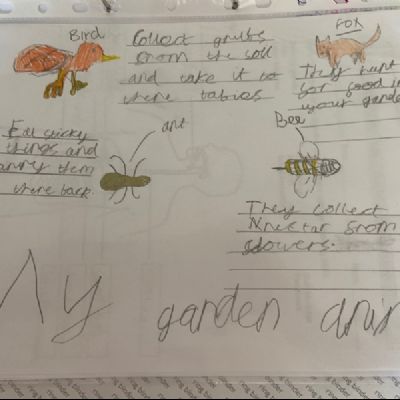 Bird
Collect grubs
from the soil
and take it to
there babies
FOX
They hunt
for food in
your garde
ant
Eat sticky
things and
carry them
there back
Bee
They collect
Nectar from
flowers.
My garden anim
ring binder ring binder ring binder ring binder